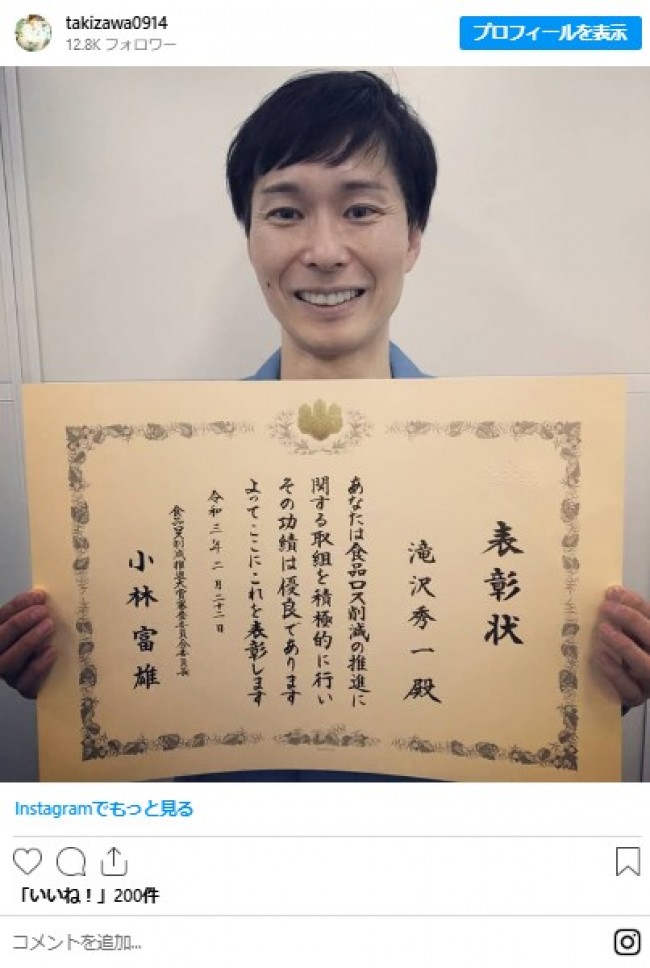 takizawa0914
12.8K フォロワー
プロフィールを表示
表彰状
滝沢秀一殿
あなたは食品ロス削減の推進に
関する取組を積極的に行い
その功績は優良であります
よってここにこれを表彰します
令和三年二月二十二日
食品ロス削減推進大賞審査委員会委員長
小林富雄
Instagramでもっと見る
「いいね！」200件
コメントを追加...